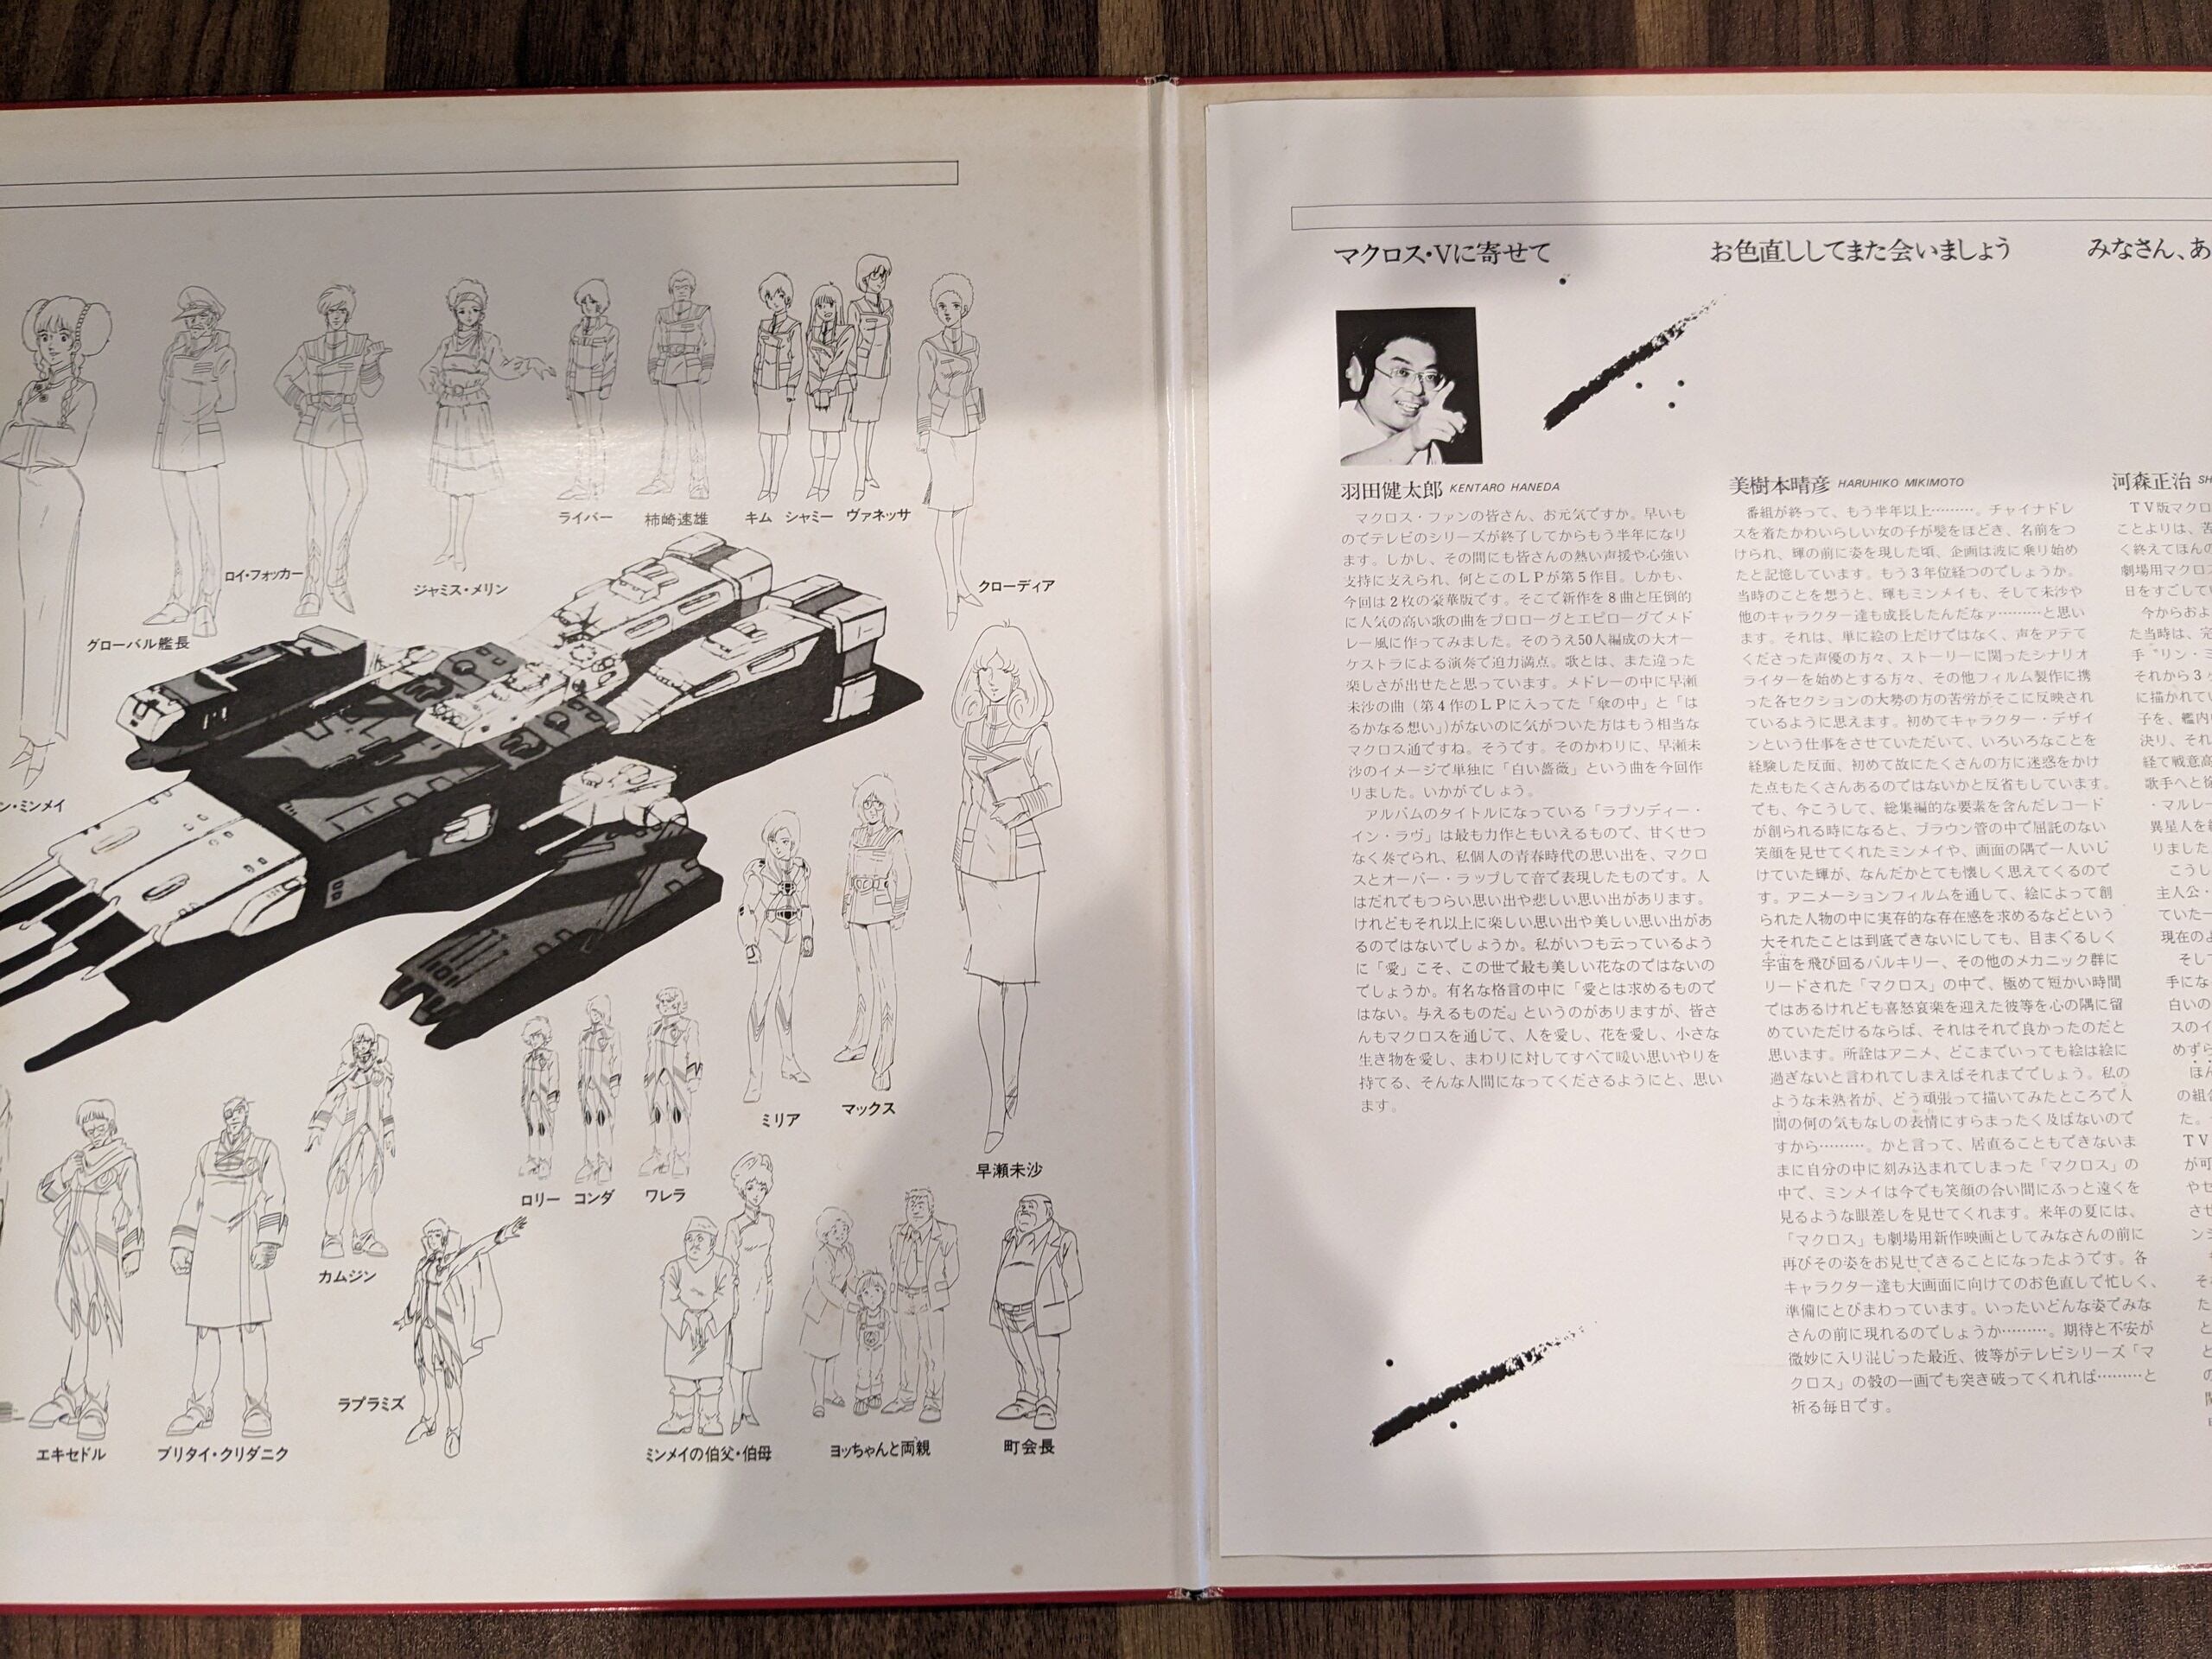 ン・ミンメイ
グローバル艦長
ロイ・フォッカー
ジャミス・メリン
ライバー
柿崎速雄
キム
シャミー
ヴァネッサ
クローディア
ミリア
マックス
早瀬未沙
ロリー
コンダ
ワレラ
カムジン
ラプラミズ
エキセドル
ブリタイ・クリダニク
ミンメイの伯父・伯母
ヨッちゃんと両親
町会長
マクロス・Vに寄せて
羽田健太郎 KENTARO HANEDA
マクロス・ファンの皆さん、お元気ですか。早いも
のでテレビのシリーズが終了してからもう半年になり
ます。しかし、その間にも皆さんの熱い声援や心強い
支持に支えられ、何とこのLPが第5作目。しかも、
今回は2枚の豪華版です。そこで新作を8曲と圧倒的
に人気の高い歌の曲をプロローグとエピローグでメド
レー風に作ってみました。そのうえ50人編成の大オー
ケストラによる演奏で迫力満点。歌とは、また違った
楽しさが出せたと思っています。メドレーの中に早瀬
未沙の曲(第4作のLPに入ってた「傘の中」と「は
るかなる想い」)がないのに気がついた方はもう相当な
マクロス通ですね。そうです。そのかわりに、早瀬未
沙のイメージで単独に「白い薔薇」という曲を今回作
りました。いかがでしょう。
アルバムのタイトルになっている「ラプソディー・
イン・ラヴ」は最も力作ともいえるもので、甘くせつ
なく奏でられ、私個人の青春時代の思い出を、マクロ
スとオーバー・ラップして音で表現したものです。人
はだれでもつらい思い出や悲しい思い出があります。
けれどもそれ以上に楽しい思い出や美しい思い出があ
るのではないでしょうか。私がいつも云っているよう
に「愛」こそ、この世で最も美しい花なのではないの
でしょうか。有名な格言の中に「愛とは求めるもので
はない。与えるものだ。」というのがありますが、皆さ
んもマクロスを通じて、人を愛し、花を愛し、小さな
生き物を愛し、まわりに対してすべて暖い思いやりを
持てる、そんな人間になってくださるようにと、思い
ます。
お色直ししてまた会いましょう
美樹本晴彦 HARUHIKO MIKIMOTO
番組が終って、もう半年以上………。チャイナドレ
スを着たかわいらしい女の子が髪をほどき、名前をつ
けられ、輝の前に姿を現した頃、企画は波に乗り始め
たと記憶しています。もう3年位経つのでしょうか。
当時のことを想うと、輝もミンメイも、そして未沙や
他のキャラクター達も成長したんだなァ………と思い
ます。それは、単に絵の上だけではなく、声をアテて
くださった声優の方々、ストーリーに関ったシナリオ
ライターを始めとする方々、その他フィルム製作に携
った各セクションの大勢の方の苦労がそこに反映され
ているように思えます。初めてキャラクター・デザイ
ンという仕事をさせていただいて、いろいろなことを
経験した反面、初めて故にたくさんの方に迷惑をかけ
た点もたくさんあるのではないかと反省もしています。
でも、今こうして、総集編的な要素を含んだレコード
が創られる時になると、ブラウン管の中で屈託のない
笑顔を見せてくれたミンメイや、画面の隅で一人いじ
けていた輝が、なんだかとても懐しく思えてくるので
す。アニメーションフィルムを通して、絵によって創
られた人物の中に実存的な存在感を求めるなどという
大それたことは到底できないにしても、目まぐるしく
宇宙を飛び回るバルキリー、その他のメカニック群に
リードされた「マクロス」の中で、極めて短かい時間
ではあるけれども喜怒哀楽を迎えた彼等を心の隅に留
めていただけるならば、それはそれで良かったのだと
思います。所詮はアニメ、どこまでいっても絵は絵に
過ぎないと言われてしまえばそれまででしょう。私の
ような未熟者が、どう頑張って描いてみたところで人
間の何の気もなしの表情にすらまったく及ばないので
すから………。かと言って、居直ることもできないま
まに自分の中に刻み込まれてしまった「マクロス」の
中で、ミンメイは今でも笑顔の合い間にふっと遠くを
見るような眼差しを見せてくれます。来年の夏には、
「マクロス」も劇場用新作映画としてみなさんの前に
再びその姿をお見せできることになったようです。各
キャラクター達も大画面に向けてのお色直しで忙しく、
準備にとびまわっています。いったいどんな姿でみな
さんの前に現れるのでしょうか………。期待と不安が
微妙に入り混じった最近、彼等がテレビシリーズ「マ
クロス」の殻の一画でも突き破ってくれれば………と
祈る毎日です。
みなさん、あ
河森正治 SH
TV版マクロ
ことよりは、苦
く終えてほんの
劇場用マクロス
日をすごしてい
今からおよ
た当時は、完
手“リン・ミ
それから3
に描かれてい
子を、艦内
決り、それ
経て戦意高
歌手へと
・マルレー
異星人を
りました
こうし
主人公・
ていた一
現在のよ
そして
手にな
白いの
スのイ
めずら
ほん
の組
た。
TV
が可
やセ
させ
ン